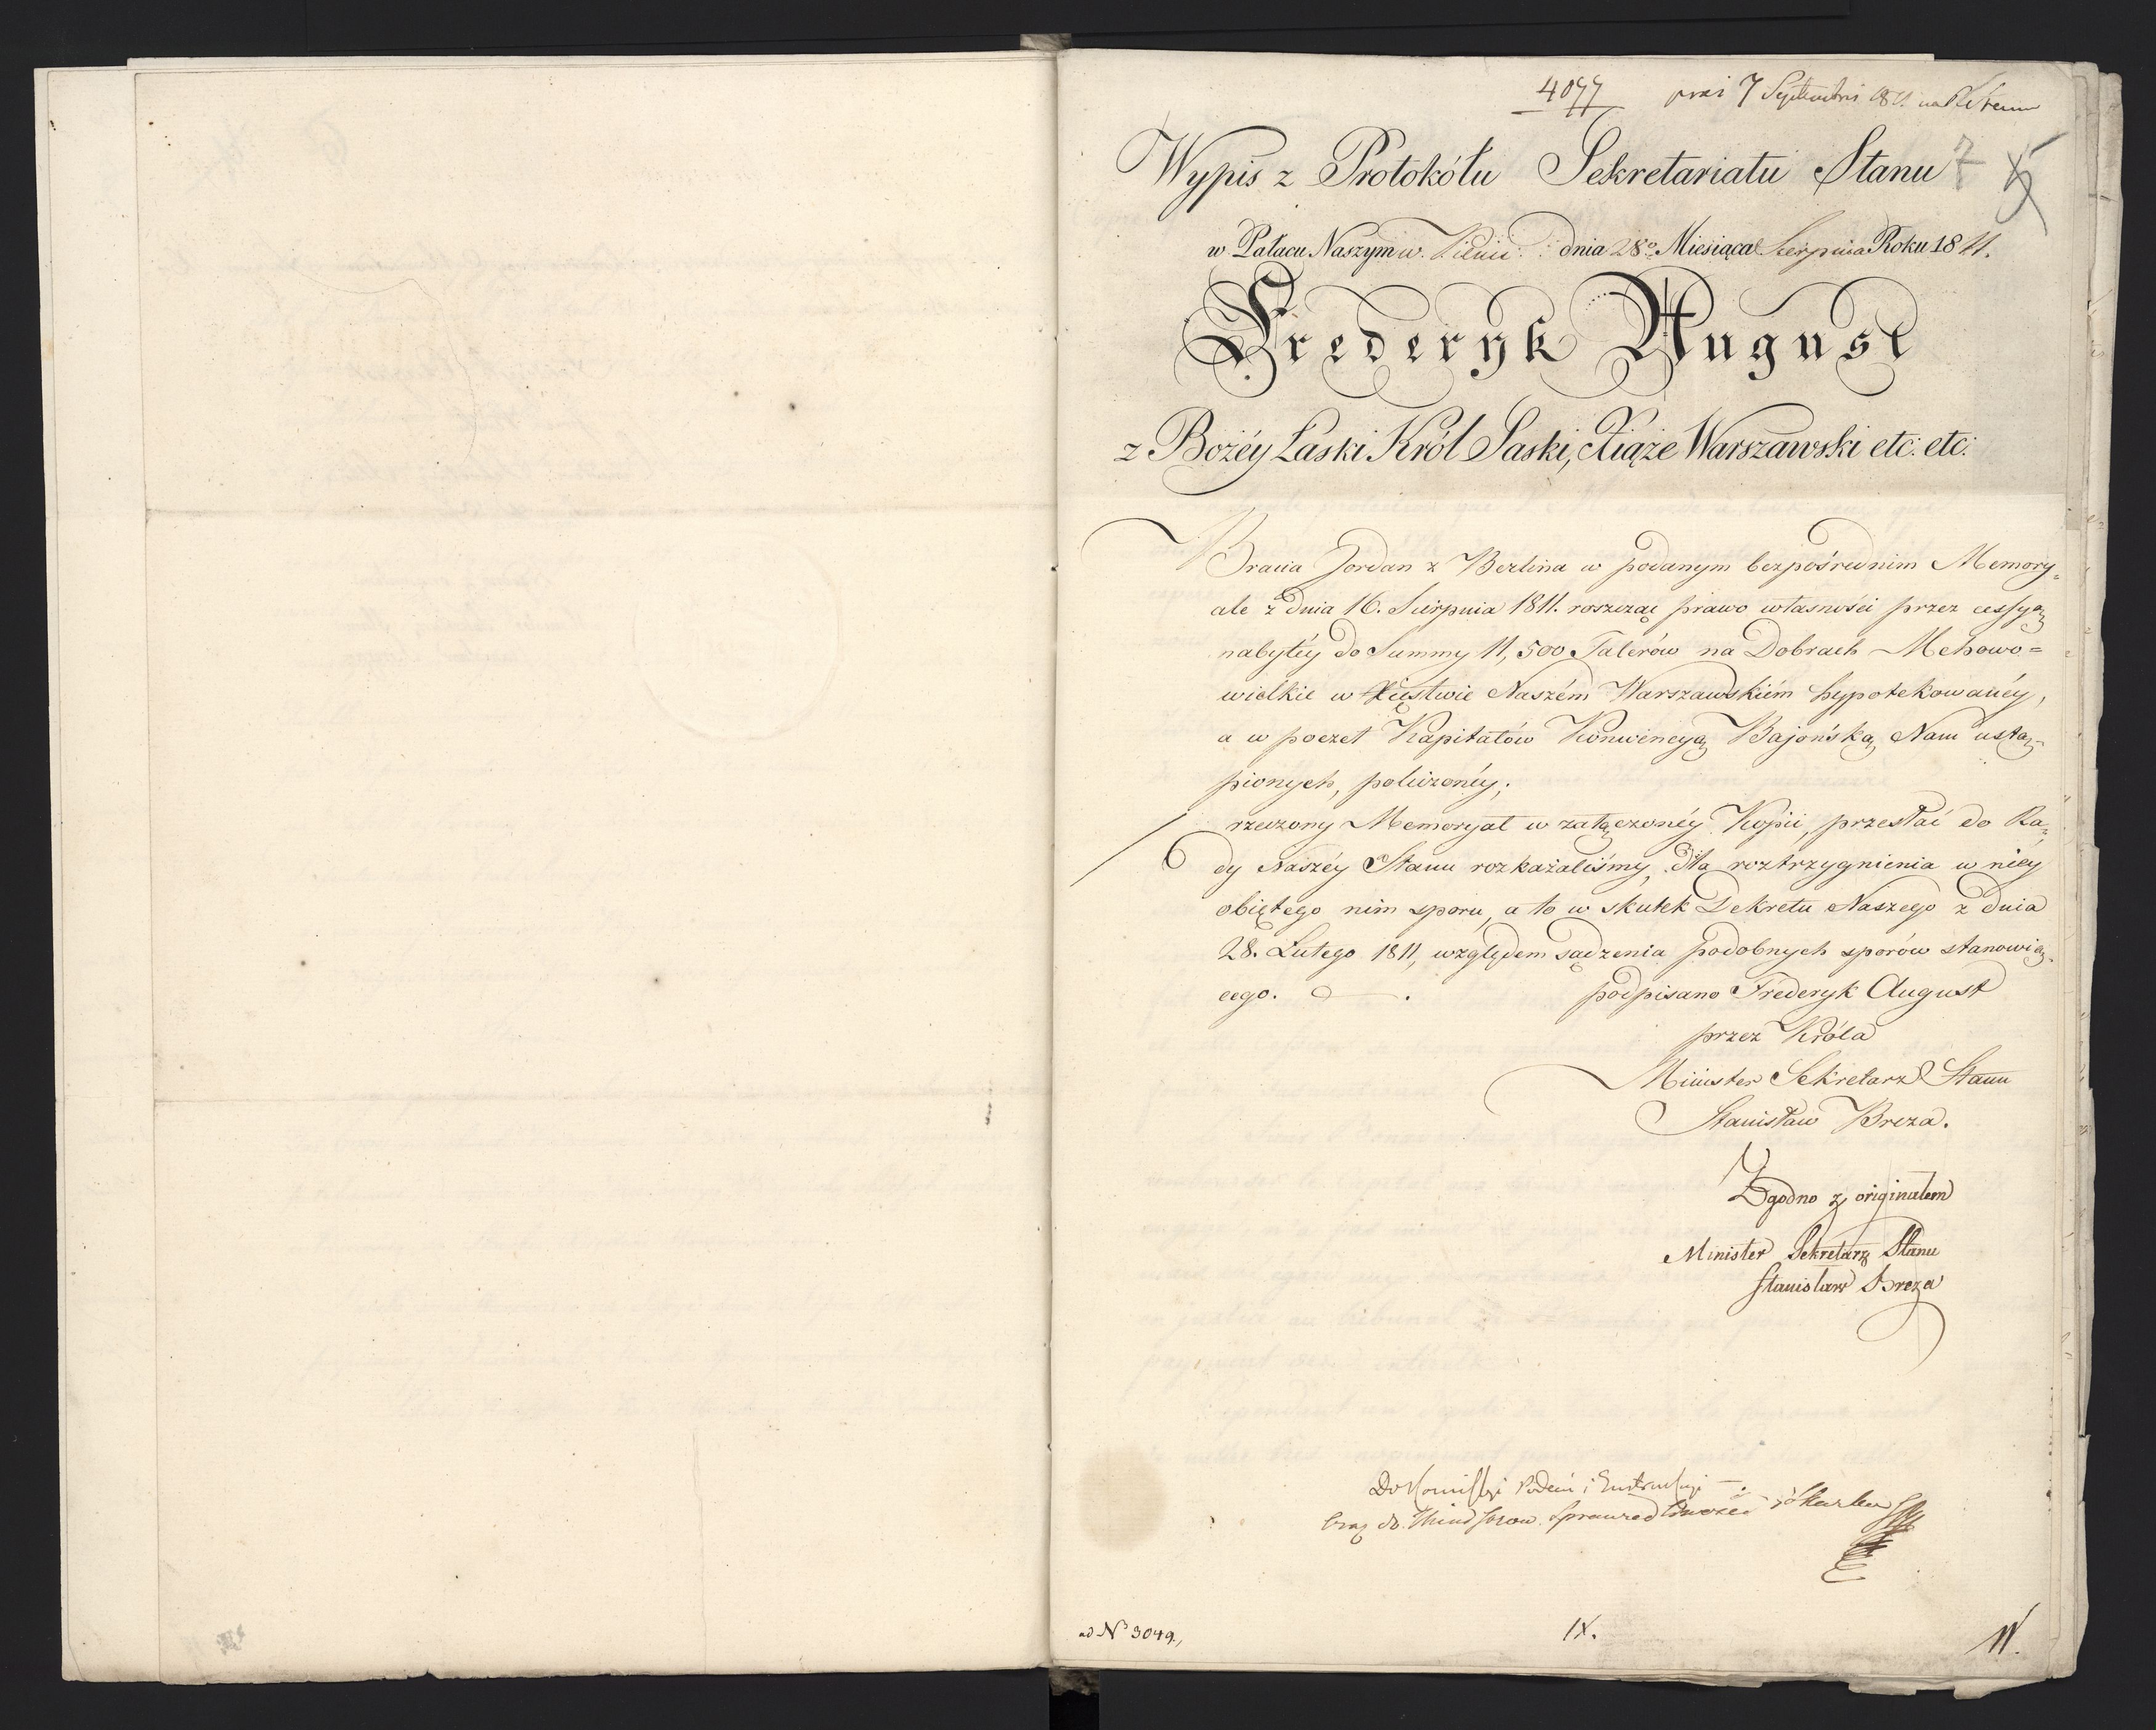 4077 7 Septembris
Wypis z Protokółu Sekretariatu Stanu 7
w Pałacu Naszym w. Pilnic: dnia 28o Miesiąca Sierpnia Roku 1811.
Frederyk August
z Bożéy Łaski Król Saski, Xiąże Warszawski etc: etc:
Bracia Jordan z Berlina w podanym bezpośrednim Memory=
ale z dnia 16. Sierpnia 1811. roszcząc prawo własności przez cessyą
nabytéy do Summy 11,500 Talerów na Dobrach Mchowo=
wielkie w Xięstwie Naszém Warszawskiém hypotekowanéy,
a w poczet Kapitałów Konwencyą Bajońską Nam ustą=
pionych, policzonéy;
rzeczony Memoryał w załączonéy Kopii, przesłać do Ra=
dy Naszéy Stanu rozkazaliśmy, dla roztrzygnienia w niey
obiętego nim sporu, a to w skutek Dekretu Naszego z dnia
28. Lutego 1811, względem sądzenia podobnych sporów stanowią=
cego. podpisano Frederyk August
przez Króla
Minister Sekretarz Stanu
Stanisław Breza.
Zgodno z originałem
Minister Sekretarz Stanu
Stanisław Breza
Do Kommissyi Podań i Instrukcyi
oraz do Sprawiedliwości i Skarbu
ad No 3049.,
IX.